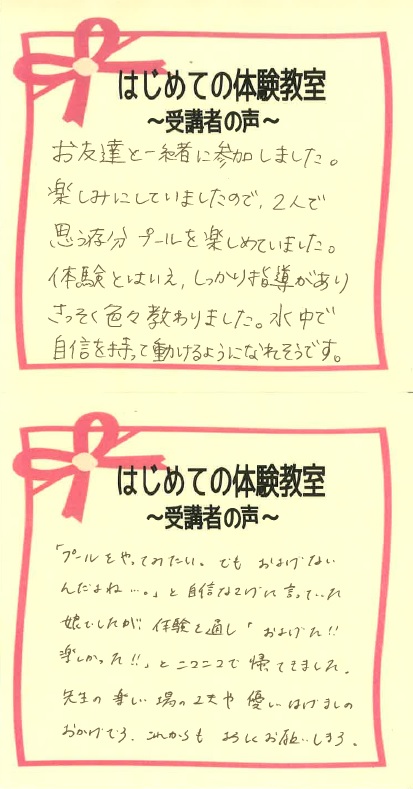 はじめての体験教室
～受講者の声～
お友達と一緒に参加しました。
楽しみにしていましたので、2人で
思う存分プールを楽しめていました。
体験とはいえ、しっかり指導があり
さっそく色々教わりました。水中で
自信を持って動けるようになれそうです。
はじめての体験教室
～受講者の声～
「プールをやってみたい。でもおよげない
んだよね…。」と自信なさげに言っていた
娘でしたが、体験を通し「およげた!!
楽しかった!!」とニコニコで帰てきました。
先生の楽しい場の工夫や優しいはげましの
おかげです。これからもよろしくお願いします。